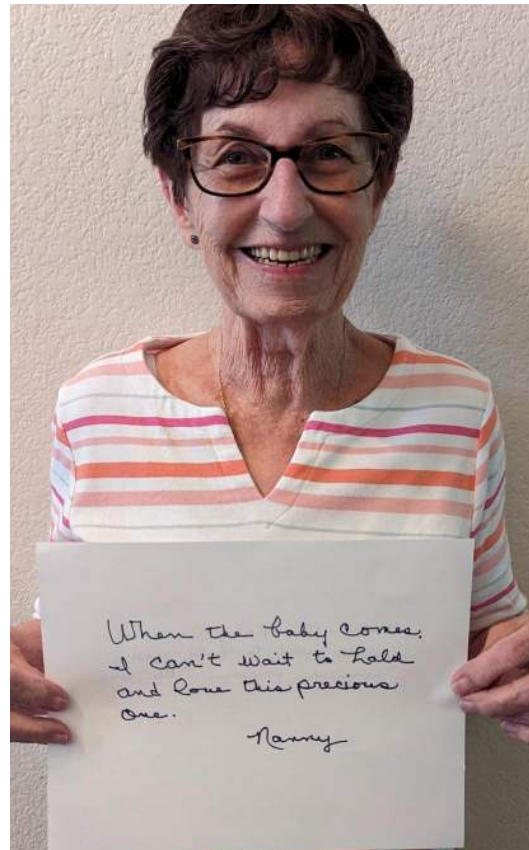 When the baby comes,
I can't wait to hold
and love this precious
one.
Nanny